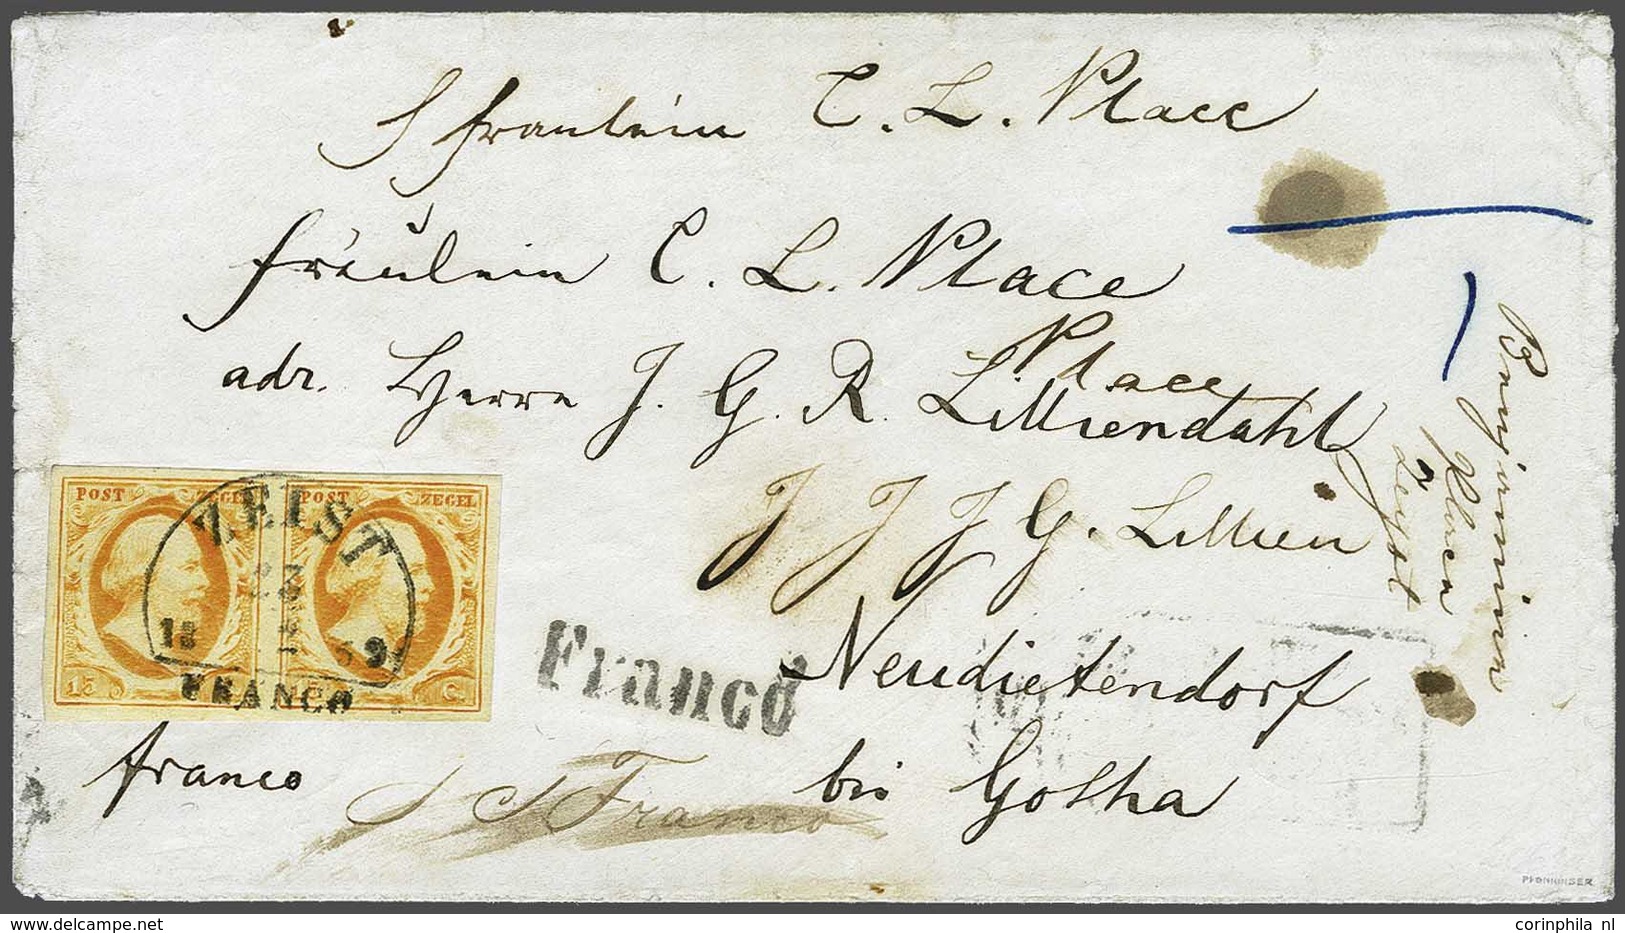 Fraulein C. L. Place
Fräulein C. L. Place
Place
adr. Herrn J. G. R. Lilliendahl
J J J G. Lillien
Neudietendorf
bei Gotha
franco
Franco
Franco
POST ZEGEL POST ZEGEL
ZEIST
23
18 59
FRANCO
15 C.
Benjamin
Zeyst
PFENNINGER
delcampe.net
corinphila nl